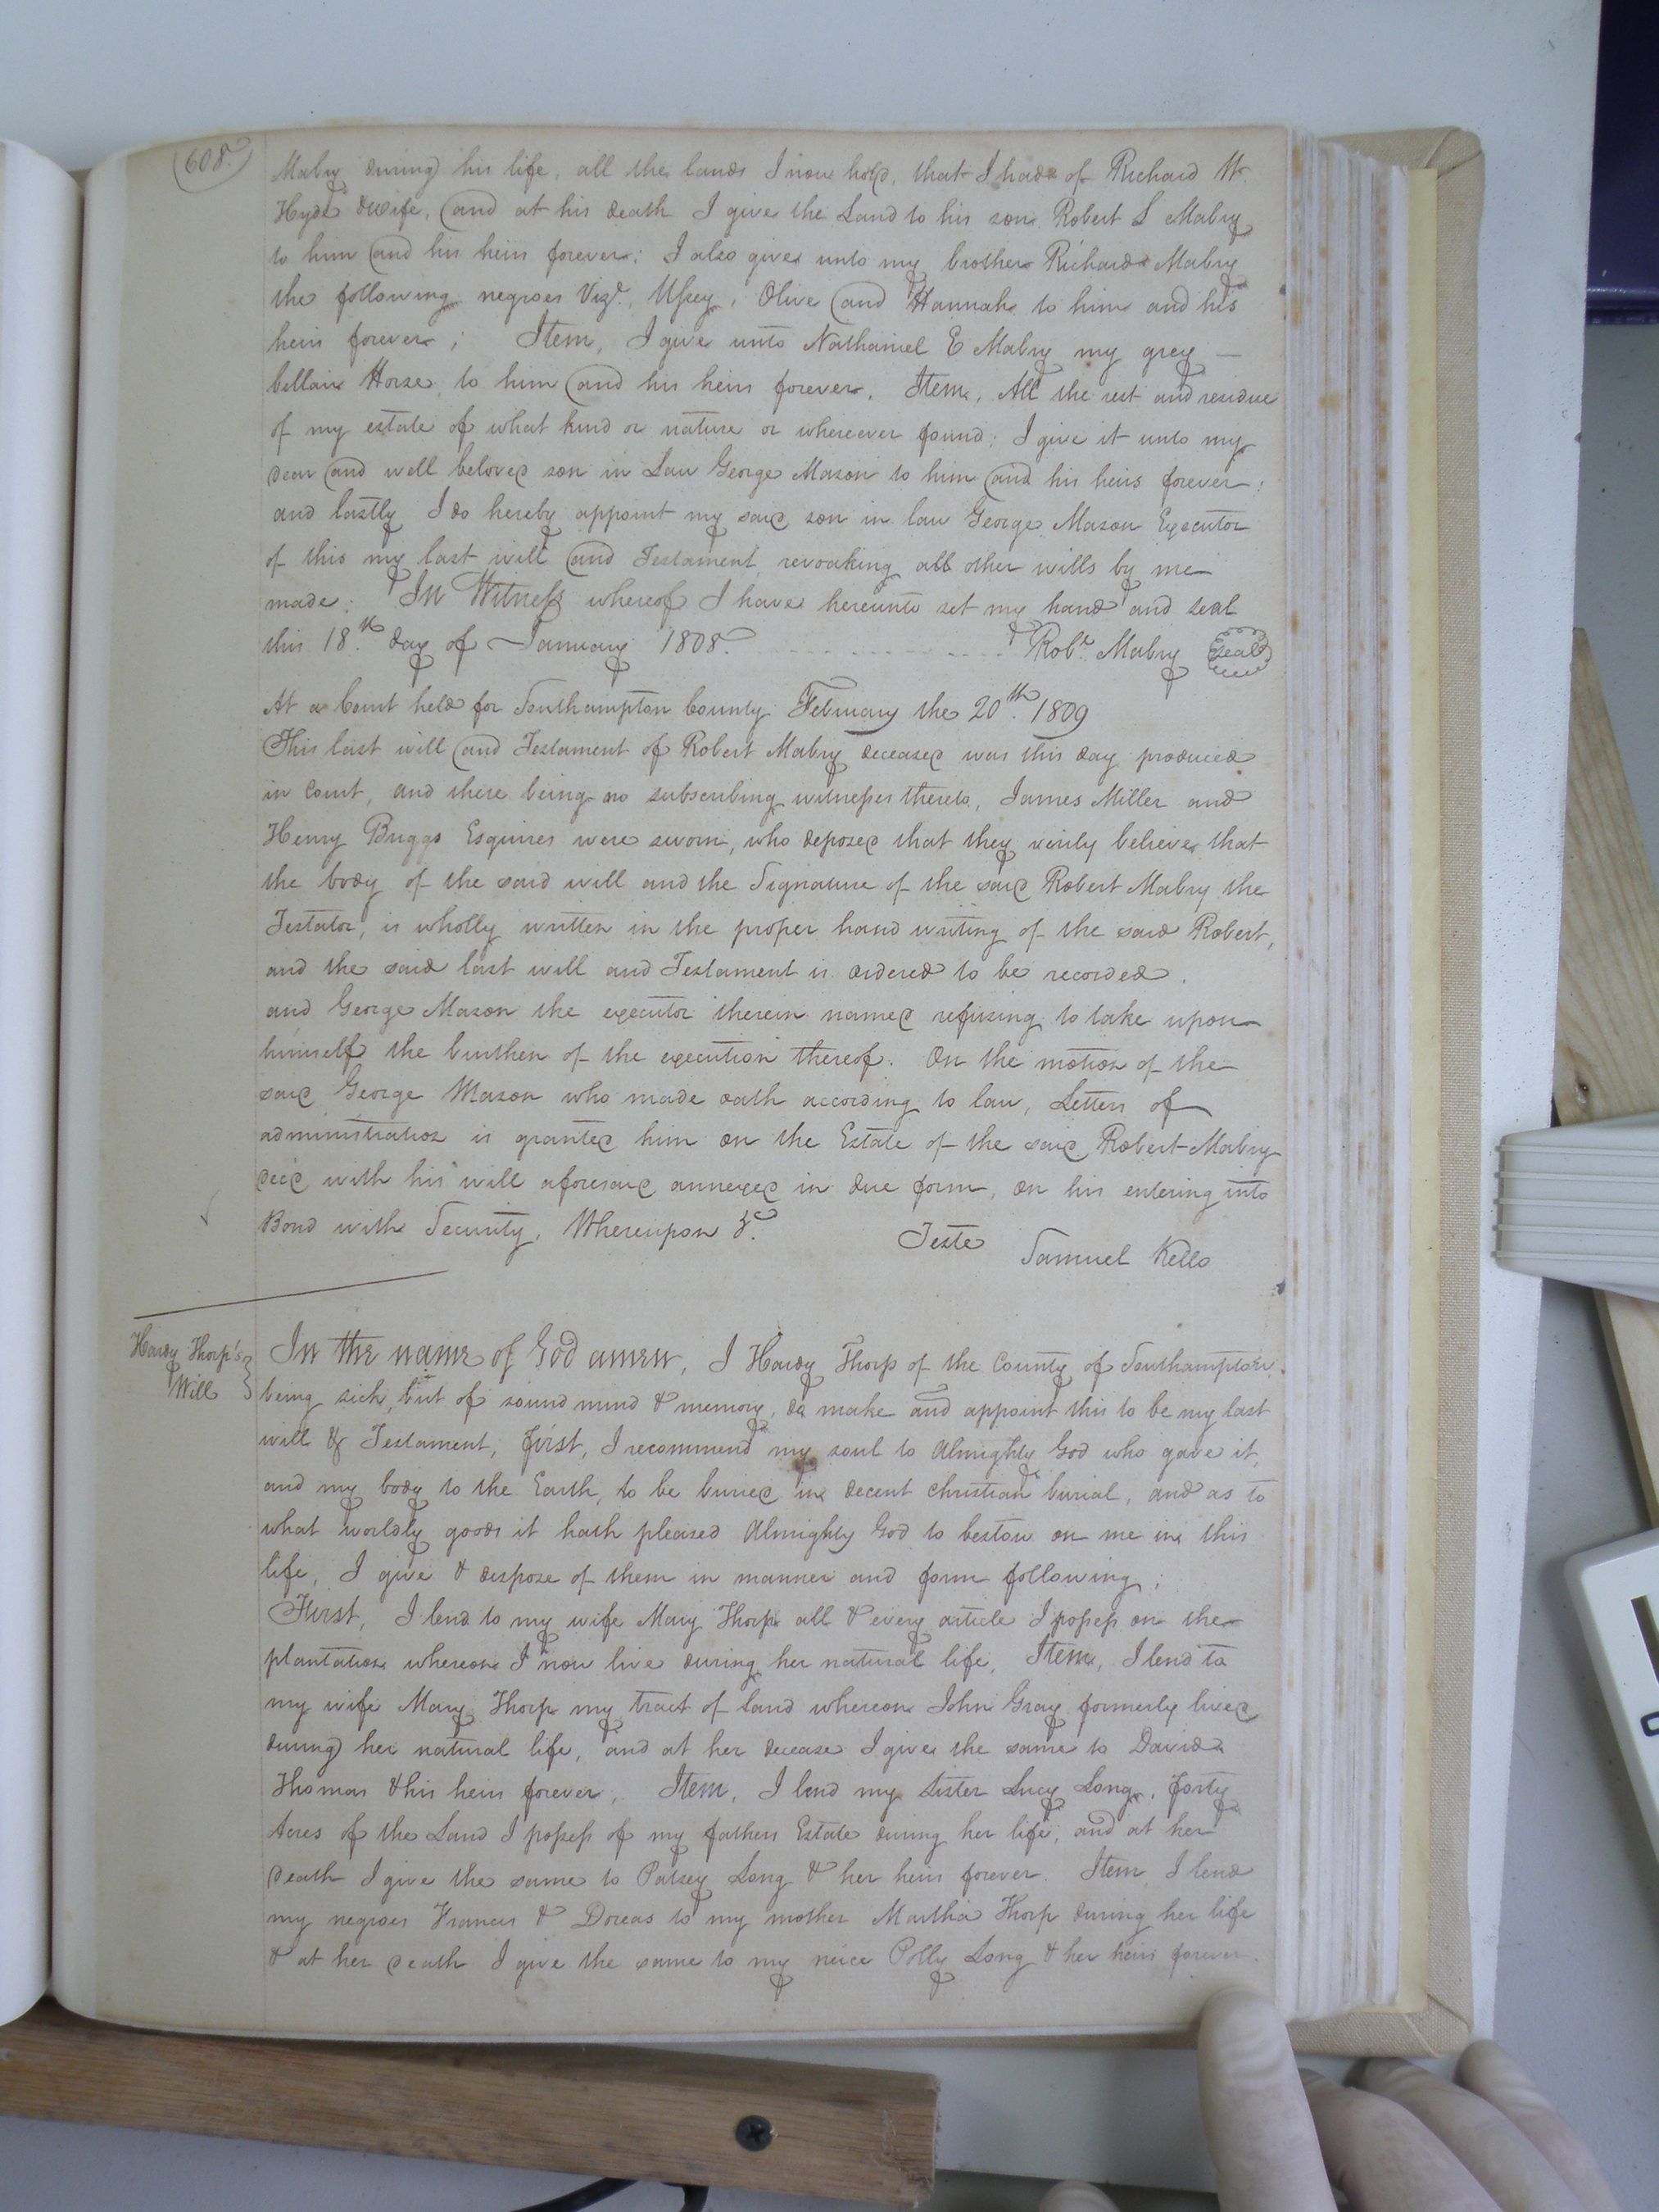 608.
Mabry during his life, all the lands I now hold, that I had of Richard W
Hyde & wife, and at his death I give the Land to his son Robert S Mabry
to him and his heirs forever; I also give unto my brother Richard Mabry
the following negroes Vizt. Upsey, Olive and Hannah to him and his
heirs forever; Item, I give unto Nathaniel E Mabry my grey —
Horse, to him and his heirs forever. Item, All the rest and residue
of my estate of what kind or nature or whereever found; I give it unto my
dear and well beloved son in Law George Mason to him and his heirs forever;
and lastly I do hereby appoint my said son in law George Mason Executor
of this my last will and Testament, revoaking all other wills by me
made; In Witness whereof I have hereunto set my hand and seal
this 18th. day of January 1808. Robt. Mabry Seal
At a Court held for Southampton County February the 20th. 1809
This last will and Testament of Robert Mabry deceased was this day produced
in Court, and there being no subscribing witnesses thereto, James Miller and
Henry Briggs Esquires were sworn, who deposed that they verily believe that
the body of the said will and the Signature of the said Robert Mabry the
Testator, is wholly written in the proper hand writing of the said Robert,
and the said last will and Testament is ordered to be recorded.
and George Mason the executor therein named refusing to take upon
himself the burthen of the execution thereof. On the motion of the
said George Mason who made oath according to law, Letters of
administration is granted him on the Estate of the said Robert Mabry
decd with his will aforesaid annexed in due form, on his entering into
Bond with Security, Whereupon &c.
Teste Samuel Kello
Hardy Thorp's
Will
In the name of God amen, I Hardy Thorp of the County of Southampton,
being sick, but of sound mind & memory, do make and appoint this to be my last
will & Testament, first, I recommend my soul to Almighty God who gave it,
and my body to the Earth, to be buried in decent christian burial, and as to
what worldly goods it hath pleased Almighty God to bestow on me in this
life, I give & dispose of them in manner and form following;
First, I lend to my wife Mary Thorp all & every article I possess on the
plantation whereon I now live during her natural life, Item, I lend to
my wife Mary Thorp my tract of land whereon John Gray formerly lived
during her natural life, and at her decease I give the same to David
Thomas & his heirs forever, Item, I lend my Sister Lucy Long, forty
Acres of the Land I possess of my fathers Estate during her life, and at her
death I give the same to Patsey Long & her heirs forever. Item, I lend
my negroes Frances & Dorcas to my mother Martha Thorp during her life
& at her death I give the same to my neice Polly Long & her heirs forever.